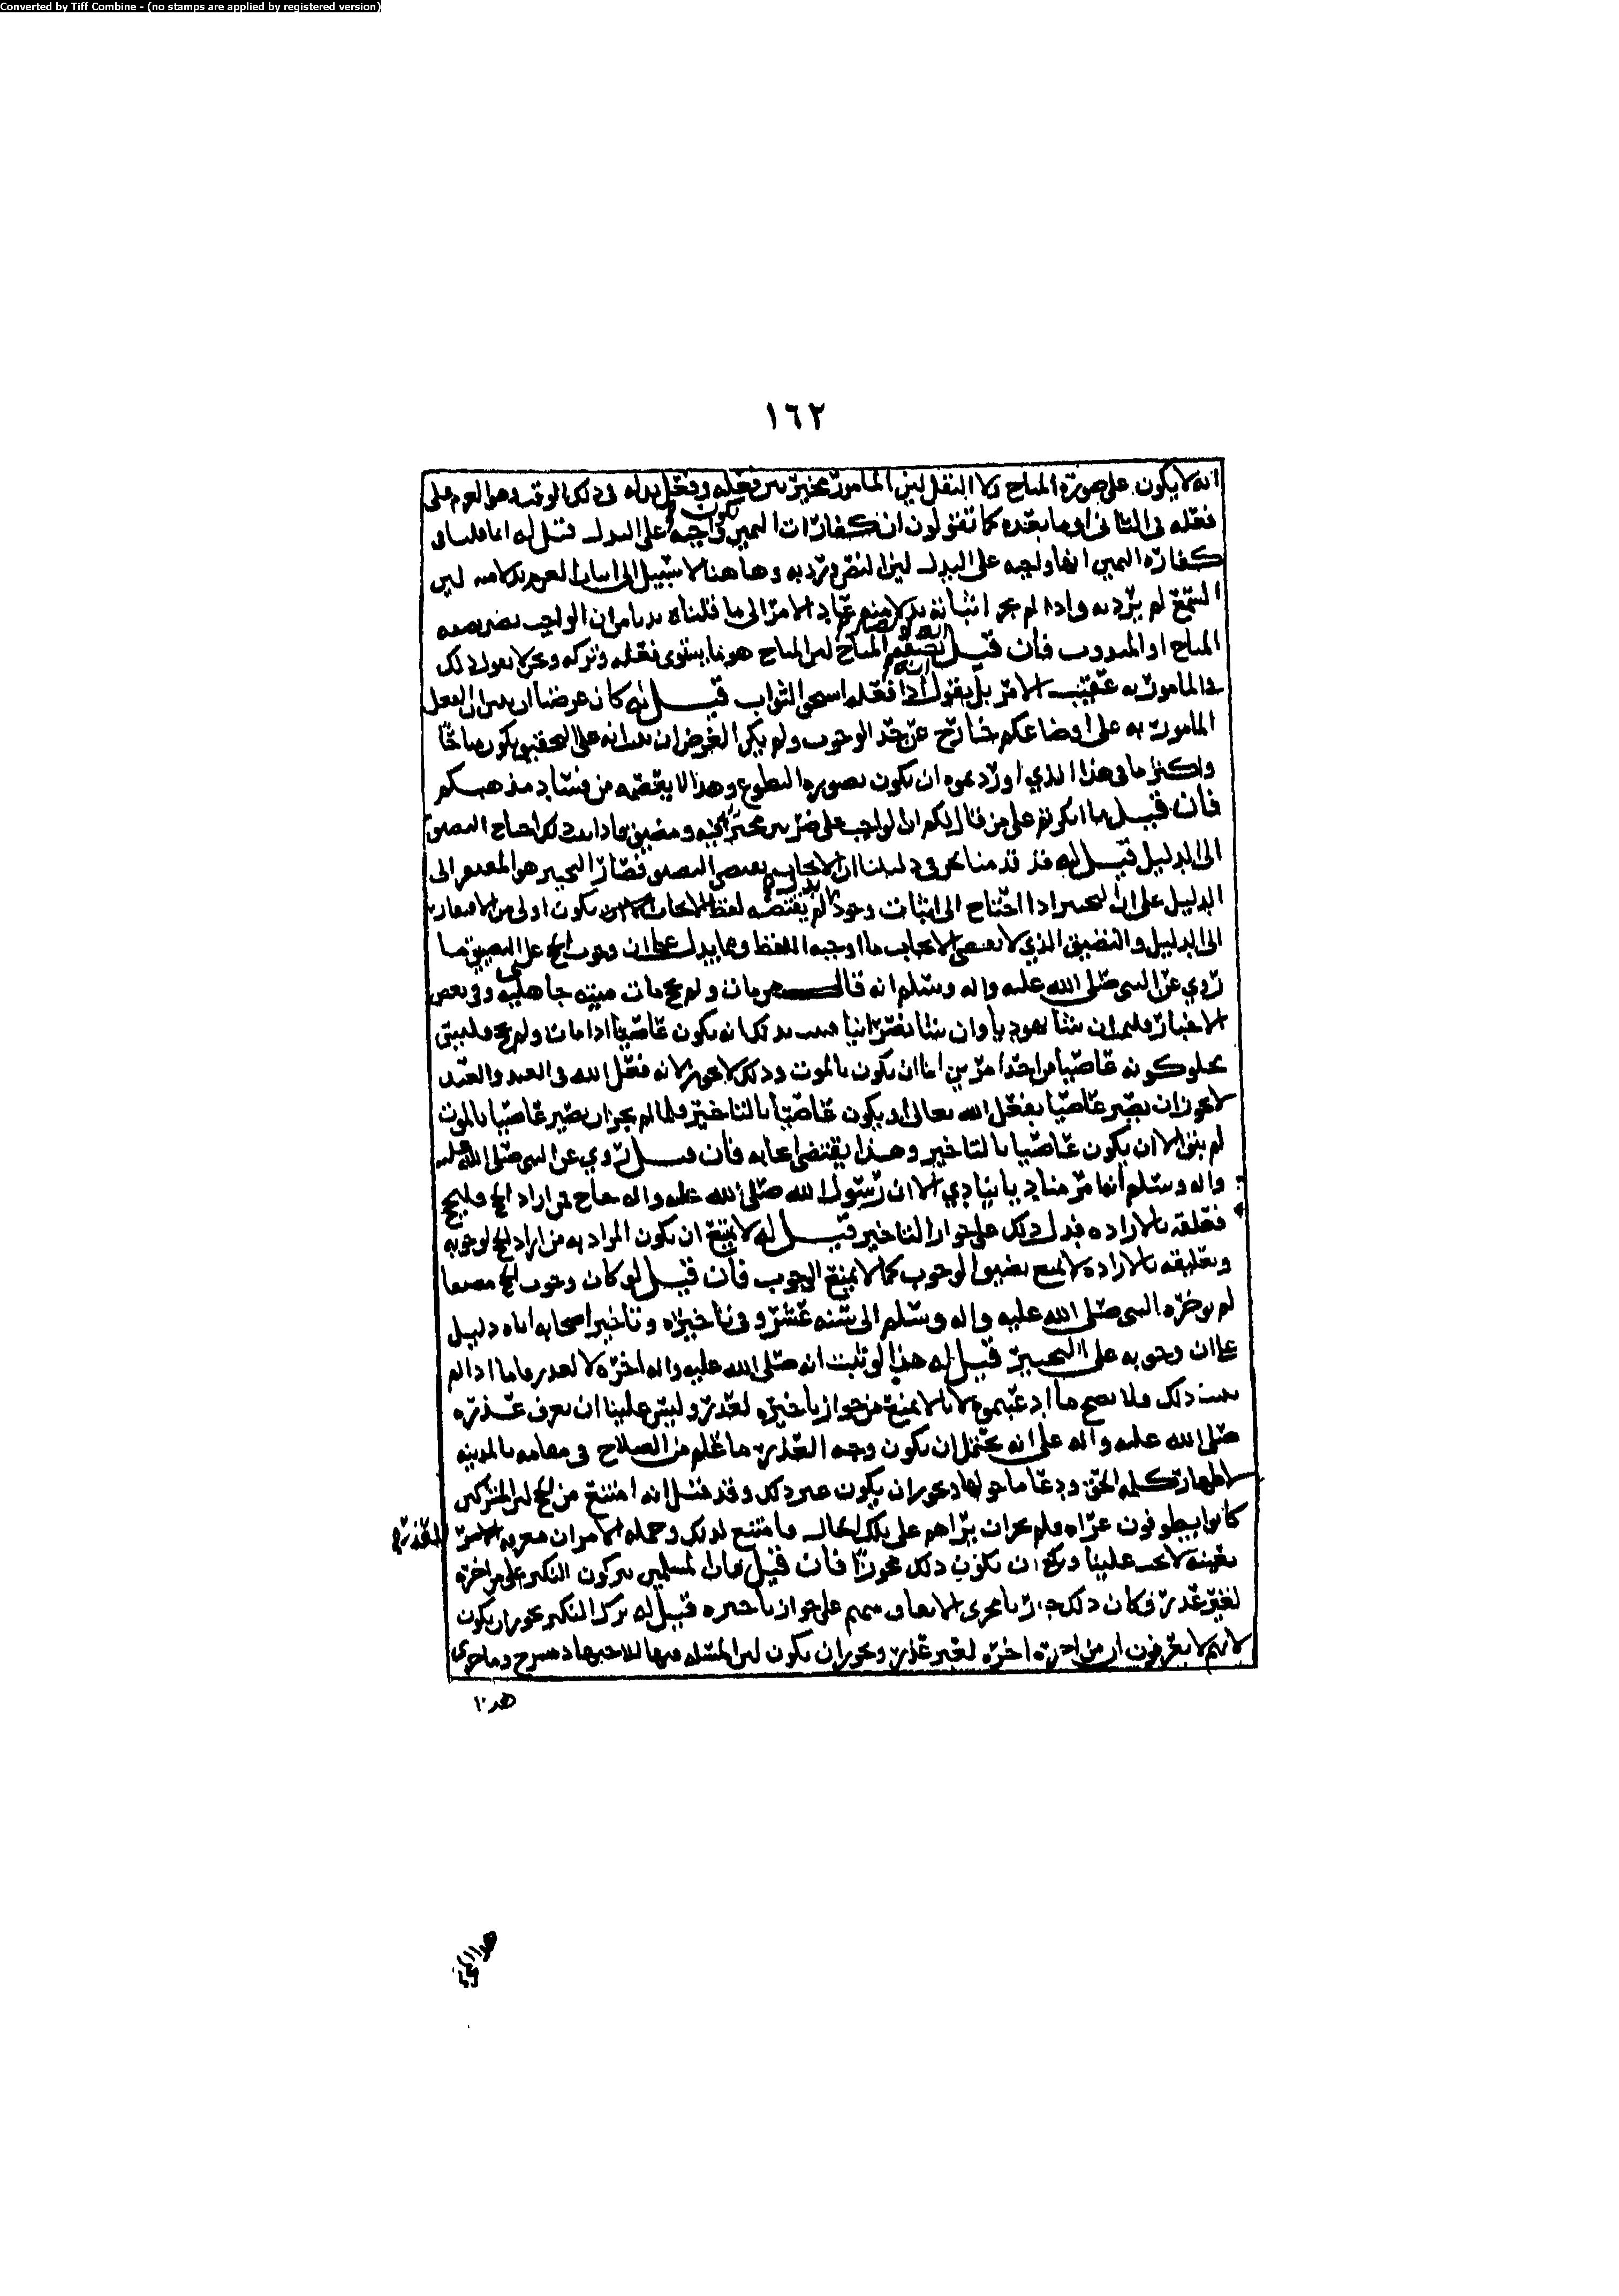 Converted by Tiff Combine - (no stamps are applied by registered version)
١٦٢
انه لا يكون على صورة المباح ولا النفل لين المامور مخير بين فعله وفعل بدله في ذلك الوقت وهو العزم على
فعله في الثاني او ما بعده كما تقولون ان كفارات اليمين تكون واجبه على البدل قيل له انما قلنا في
كفاره اليمين انها واجبه على البدل لين النص ورد به وها هنا لا سبيل الى اثبات العزم بدلا منه لين
السمع لم يرد به واذا لم يجز اثباته بدلا منه عاد الامر الى ما قلناه بديا من ان الواجب يصير بصفه
المباح او المندوب فان قيل المباح لين المباح هو ما يستوى فعله وتركه ونحن لا نقول ذلك
في المامور به عقيب الامر بل نقول انه اذا فعله استحق الثواب قيل له كان غرضنا ان نبين ان الفعل
المامور به على اوضاعكم خارج عن حد الوجوب ولم يكن الغرض ان نبين انه على التحقيق يكون مباحا
واكثر ما في هذا الذي اوردتموه ان يكون بصوره التطوع وهذا لا ينقصه من فساد مذهبكم
فان قيل ما انكرتم على من قال لكم ان الواجب على ضربين مخير فيه ومضيق فاذا ثبت ذلك احتاج المضيق
الى الدليل قيل له قد قدمنا نحن في دليلنا ان الايجاب يقتضي التضيق فصار التخيير هو المفتقر الى
الدليل على ان التخيير اذا احتاج الى اثبات وجود بدل لم يقتضه لفظ الايجاب كان يكون اولى من الافتقار
الى الدليل والتضييق الذي لا يقتضي الايجاب ما اوجبه اللفظ ومما يدل على ان وجوب الحج على التضييق ما
روي عن النبي صلى الله عليه واله وسلم انه قال من مات ولم يحج مات ميته جاهليه وفي بعض
الاخبار فليمت ان شا يهوديا وان شا نصرانيا فثبت بذلك انه يكون عاصيا اذا مات ولم يحج فليس
يخلو كونه عاصيا من احد امرين اما ان يكون بالموت وذلك لا يجوز لانه فعل الله في العبد والعبد
لا يجوز ان يصير عاصيا بفعل الله تعالى او يكون عاصيا بالتاخير فلما لم يجز ان يصير عاصيا بالموت
لم يبق الا ان يكون عاصيا بالتاخير وهذا يقتضي اثمه فان قيل روي عن النبي صلى الله عليه
واله وسلم انه امر مناديا ينادي الا ان رسول الله صلى الله عليه واله حاج فمن اراد الحج فليحج
فعلقه بالاراده فدل ذلك على جواز التاخير قيل له لا يمتنع ان يكون المراد به من اراد الحج لوجوبه
وتعليقه بالاراده لا يمنع تضييق الوجوب كما لا يمنع الوجوب فان قيل لو كان وجوب الحج مضيقا
لم يوخره النبي صلى الله عليه واله وسلم الى سنه عشر وفي تاخيره وتاخير اصحابه اياه دليل
على ان وجوبه على التخيير قيل له هذا لو ثبت انه صلى الله عليه واله اخره لا لعذر فاما اذا لم
يثبت ذلك فلا يصح ما ادعيتموه لانا لا نمنع من جواز تاخيره لعذر وليس علينا ان نعرف عذره
صلى الله عليه واله على انه يحتمل ان يكون وجه العذر ما علم من الصلاح في مقامه بالمدينه
لاظهار كلمه الحق ودعا ما حولها ويجوز ان يكون غير ذلك وقد قيل انه امتنع من الحج لين المشركين
كانوا يطوفون عراه فلم يجز ان يراهم على تلك الحال فامتنع لذلك وجمله الامر ان معرفه الامر
بعينه لا يجب علينا ويكفي ان يكون ذلك مجوزا فان قيل فان المسلمين يتركون النكير على من اخره
لغير عذر فكان ذلك جاريا مجرى الاتفاق منهم على جواز تاخيره قيل له ترك النكير يجوز ان يكون
لانهم لا يعرفون ان من اخره اخره لغير عذر ويجوز ان يكون لين المسئله فيها للاجتهاد مسرح وما جرى
هذا